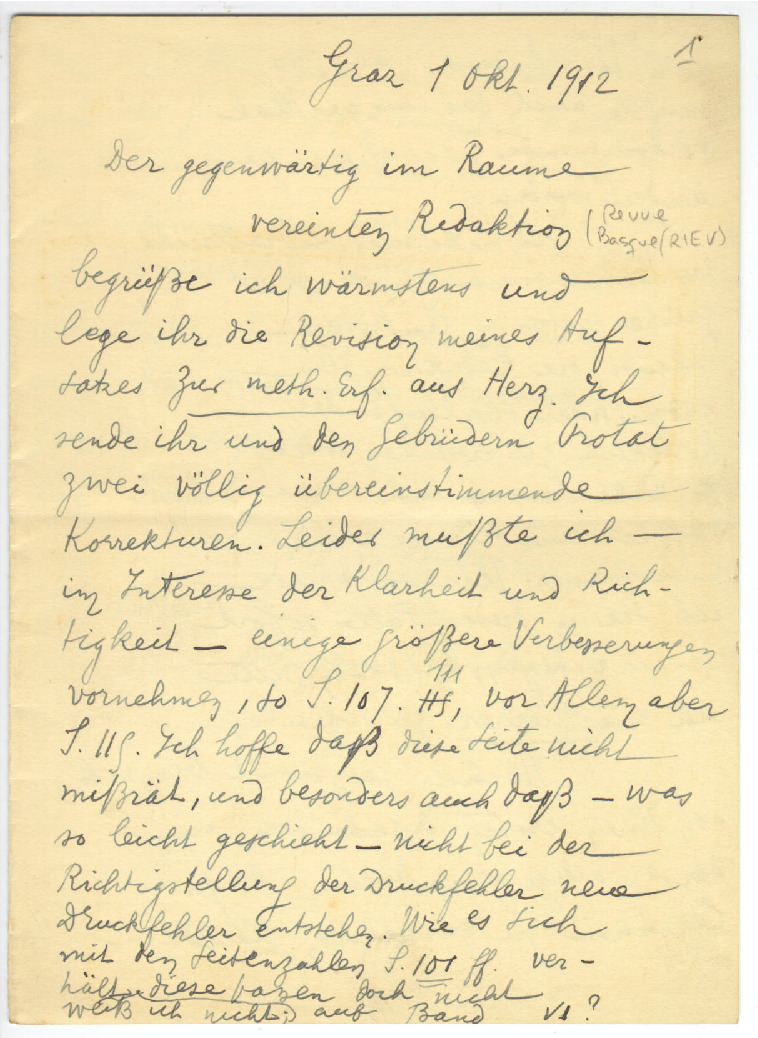 1
Graz 1 Okt. 1912
Der gegenwärtig im Raume
vereinten Redaktion (Revue
Basque (RIEV)
begrüße ich wärmstens und
lege ihr die Revision meines Auf-
satzes Zur meth. Erf. aus Herz. Ich
sende ihr und den Gebrüdern Protat
zwei völlig übereinstimmende
Korrekturen. Leider mußte ich —
im Interesse der Klarheit und Rich-
tigkeit — einige größere Verbesserungen
vornehmen, so S. 107. 111, vor Allem aber
S. 115. Ich hoffe daß diese Seite nicht
mißrät, und besonders auch daß — was
so leicht geschieht — nicht bei der
Richtigstellung der Druckfehler neue
Druckfehler entstehen. Wie es sich
mit den Seitenzahlen S. 101 ff. ver-
hält, diese passen doch nicht
weiß ich nicht; auf Band VI?